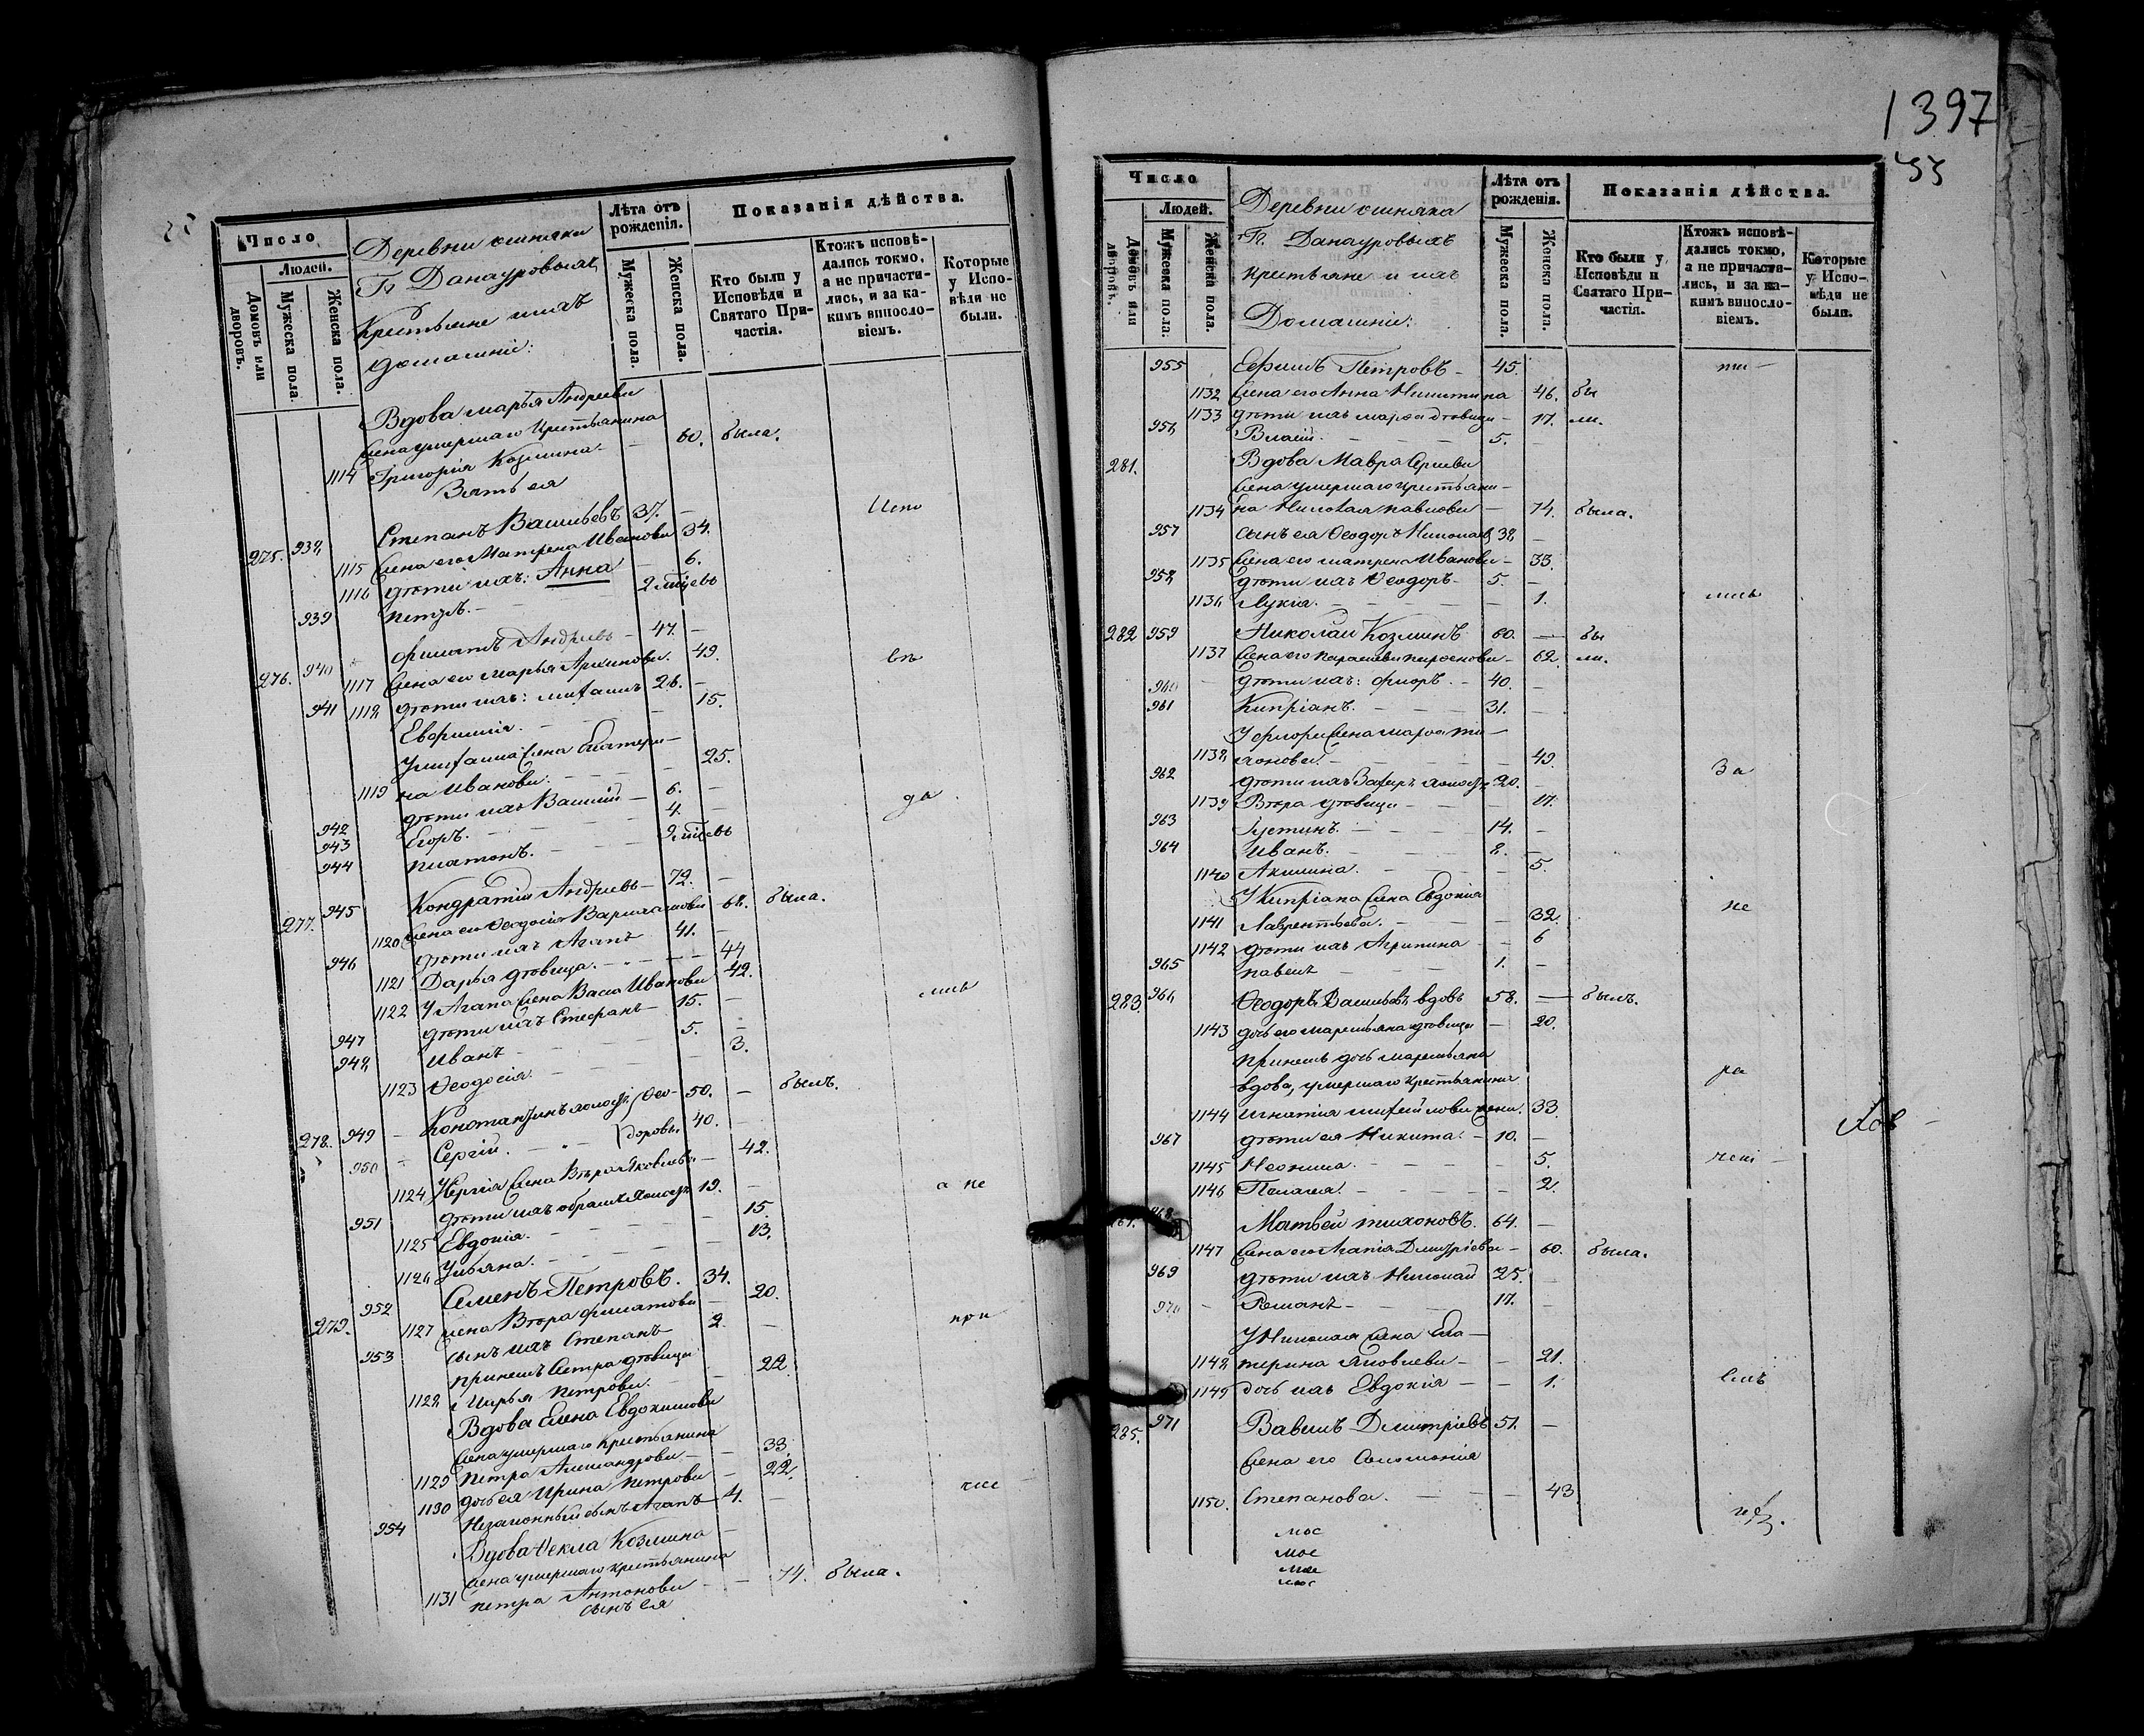 Число
Людей.
Домовъ или дворовъ.
Мужеска пола.
Женска пола.
Деревни
Гг Данауровыхъ
Крестьяне и ихъ
домашніи:
Лѣта отъ рожденія.
Мужеска пола.
Женска пола.
Показанія дѣйства.
Кто были у Исповѣди и Святаго Причастія.
Ктожъ исповѣдались токмо, а не причастились, и за какимъ винословіемъ.
Которые у Исповѣди не были.
Вдова Марья Андреева
жена умершаго крестьянина
1114 Григорія Козмина 60. была.
Зять ея
275. 938 Степанъ Васильевъ 37. Испо
1115 жена его Матрена Иванова 34.
1116 дѣти ихъ: Анна 6.
939 Петръ. 2 мѣсцевъ
276. 940 Филатъ Андреевъ 47.
1117 жена его Марья 49. вѣ
941 1118 дѣти ихъ: 26.
15.
жена Екатери-
1119 на Иванова. 25.
942 дѣти ихъ Василій 6. да
943 Егоръ. 4.
944 Платонъ. 2 мѣсцевъ
277. 945 Кондратій Андреевъ 72.
1120 жена его Ѳеодосія 62. была.
946 дѣти ихъ Агапъ 41.
1121 Дарья дѣвица. 44
1122 У Агапа жена Васса Иванова 42. лись
947 дѣти ихъ Стефанъ 15.
948 Иванъ 5.
1123 Ѳеодосія. 3.
278. 949 Константинъ холостъ Ѳео- 50. былъ.
950 Сергій. доровы 40.
1124 жена Вѣра Яковлева 42.
951 дѣти ихъ Абрамъ холостъ 19. а не
1125 Евдокія. 15.
1126 Ульяна. 13.
279. 952 Семенъ Петровъ. 34.
1127 жена Вѣра Филатова 20.
953 сынъ ихъ Степанъ 2. при
сестра дѣвица
1128 Марья Петрова. 22
Вдова Елена Евдокимова
жена умершаго крестьянина
1129 Петра Александрова 33
1130 дочь ея Ирина Петрова 22.
954 Незаконный сынъ Агапъ 4. час
Вдова Ѳекла Козмина
жена умершаго крестьянина
1131 Петра Антонова 74. была.
сынъ ея
1397
Число
Людей.
Домовъ или дворовъ.
Мужеска пола.
Женска пола.
Деревни
Гг. Данауровыхъ
крестьяне и ихъ
Домашніи:
Лѣта отъ рожденія.
Мужеска пола.
Женска пола.
Показанія дѣйства.
Кто были у Исповѣди и Святаго Причастія.
Ктожъ исповѣдались токмо, а не причастились, и за какимъ винословіемъ.
Которые у Исповѣди не были.
955 Ефимъ Петровъ 45. ти
1132 жена его Анна Никитина 46. бы
1133 дѣти ихъ Марѳа дѣвица 17. ли.
956 Власій. 5.
281. Вдова Мавра
жена умершаго крестьяни-
1134 на Николая Павлова 74. была.
957 сынъ ея Ѳеодоръ Николаевъ 38
1135 жена его Матрена Иванова 33.
958 дѣти ихъ Ѳеодоръ 5.
1136 Лукія. 1. лись
282 959 Николай Козминъ 60. бы
1137 жена его 62. ли.
960 дѣти ихъ: Флоръ. 40.
961 Кипріанъ. 31.
У Флора жена Марѳа Ти-
1138 хонова. 49.
962 дѣти ихъ холостъ 20. За
1139 Вѣра дѣвица 17.
963 Густинъ. 14.
964 Иванъ. 8.
1140 Акилина. 5.
У Кипріана жена Евдокія
1141 Лаврентьева. 32. не
1142 дѣти ихъ Агрипина 6
965 Павелъ 1.
283. 966 Ѳеодоръ Васильевъ вдовъ 58. былъ.
1143 дочь его дѣвица 20.
вдова, умершаго крестьянина ра
1144 Игнатія жена. 33.
967 дѣти ея Никита. 10.
1145 Неонила. 5. чені
1146 Пелагея. 2.
968 Матвей Тихоновъ. 64.
1147 жена его Агапія Дмитріева 60. была.
969 дѣти ихъ Николай 25.
970 Романъ 17.
У Николая жена Ека-
1148 терина Яковлева 21.
1149 дочь ихъ Евдокія 1. емъ
285. 971 Вавилъ Дмитріевъ 51.
жена его Соломонія
1150. Степанова. 43